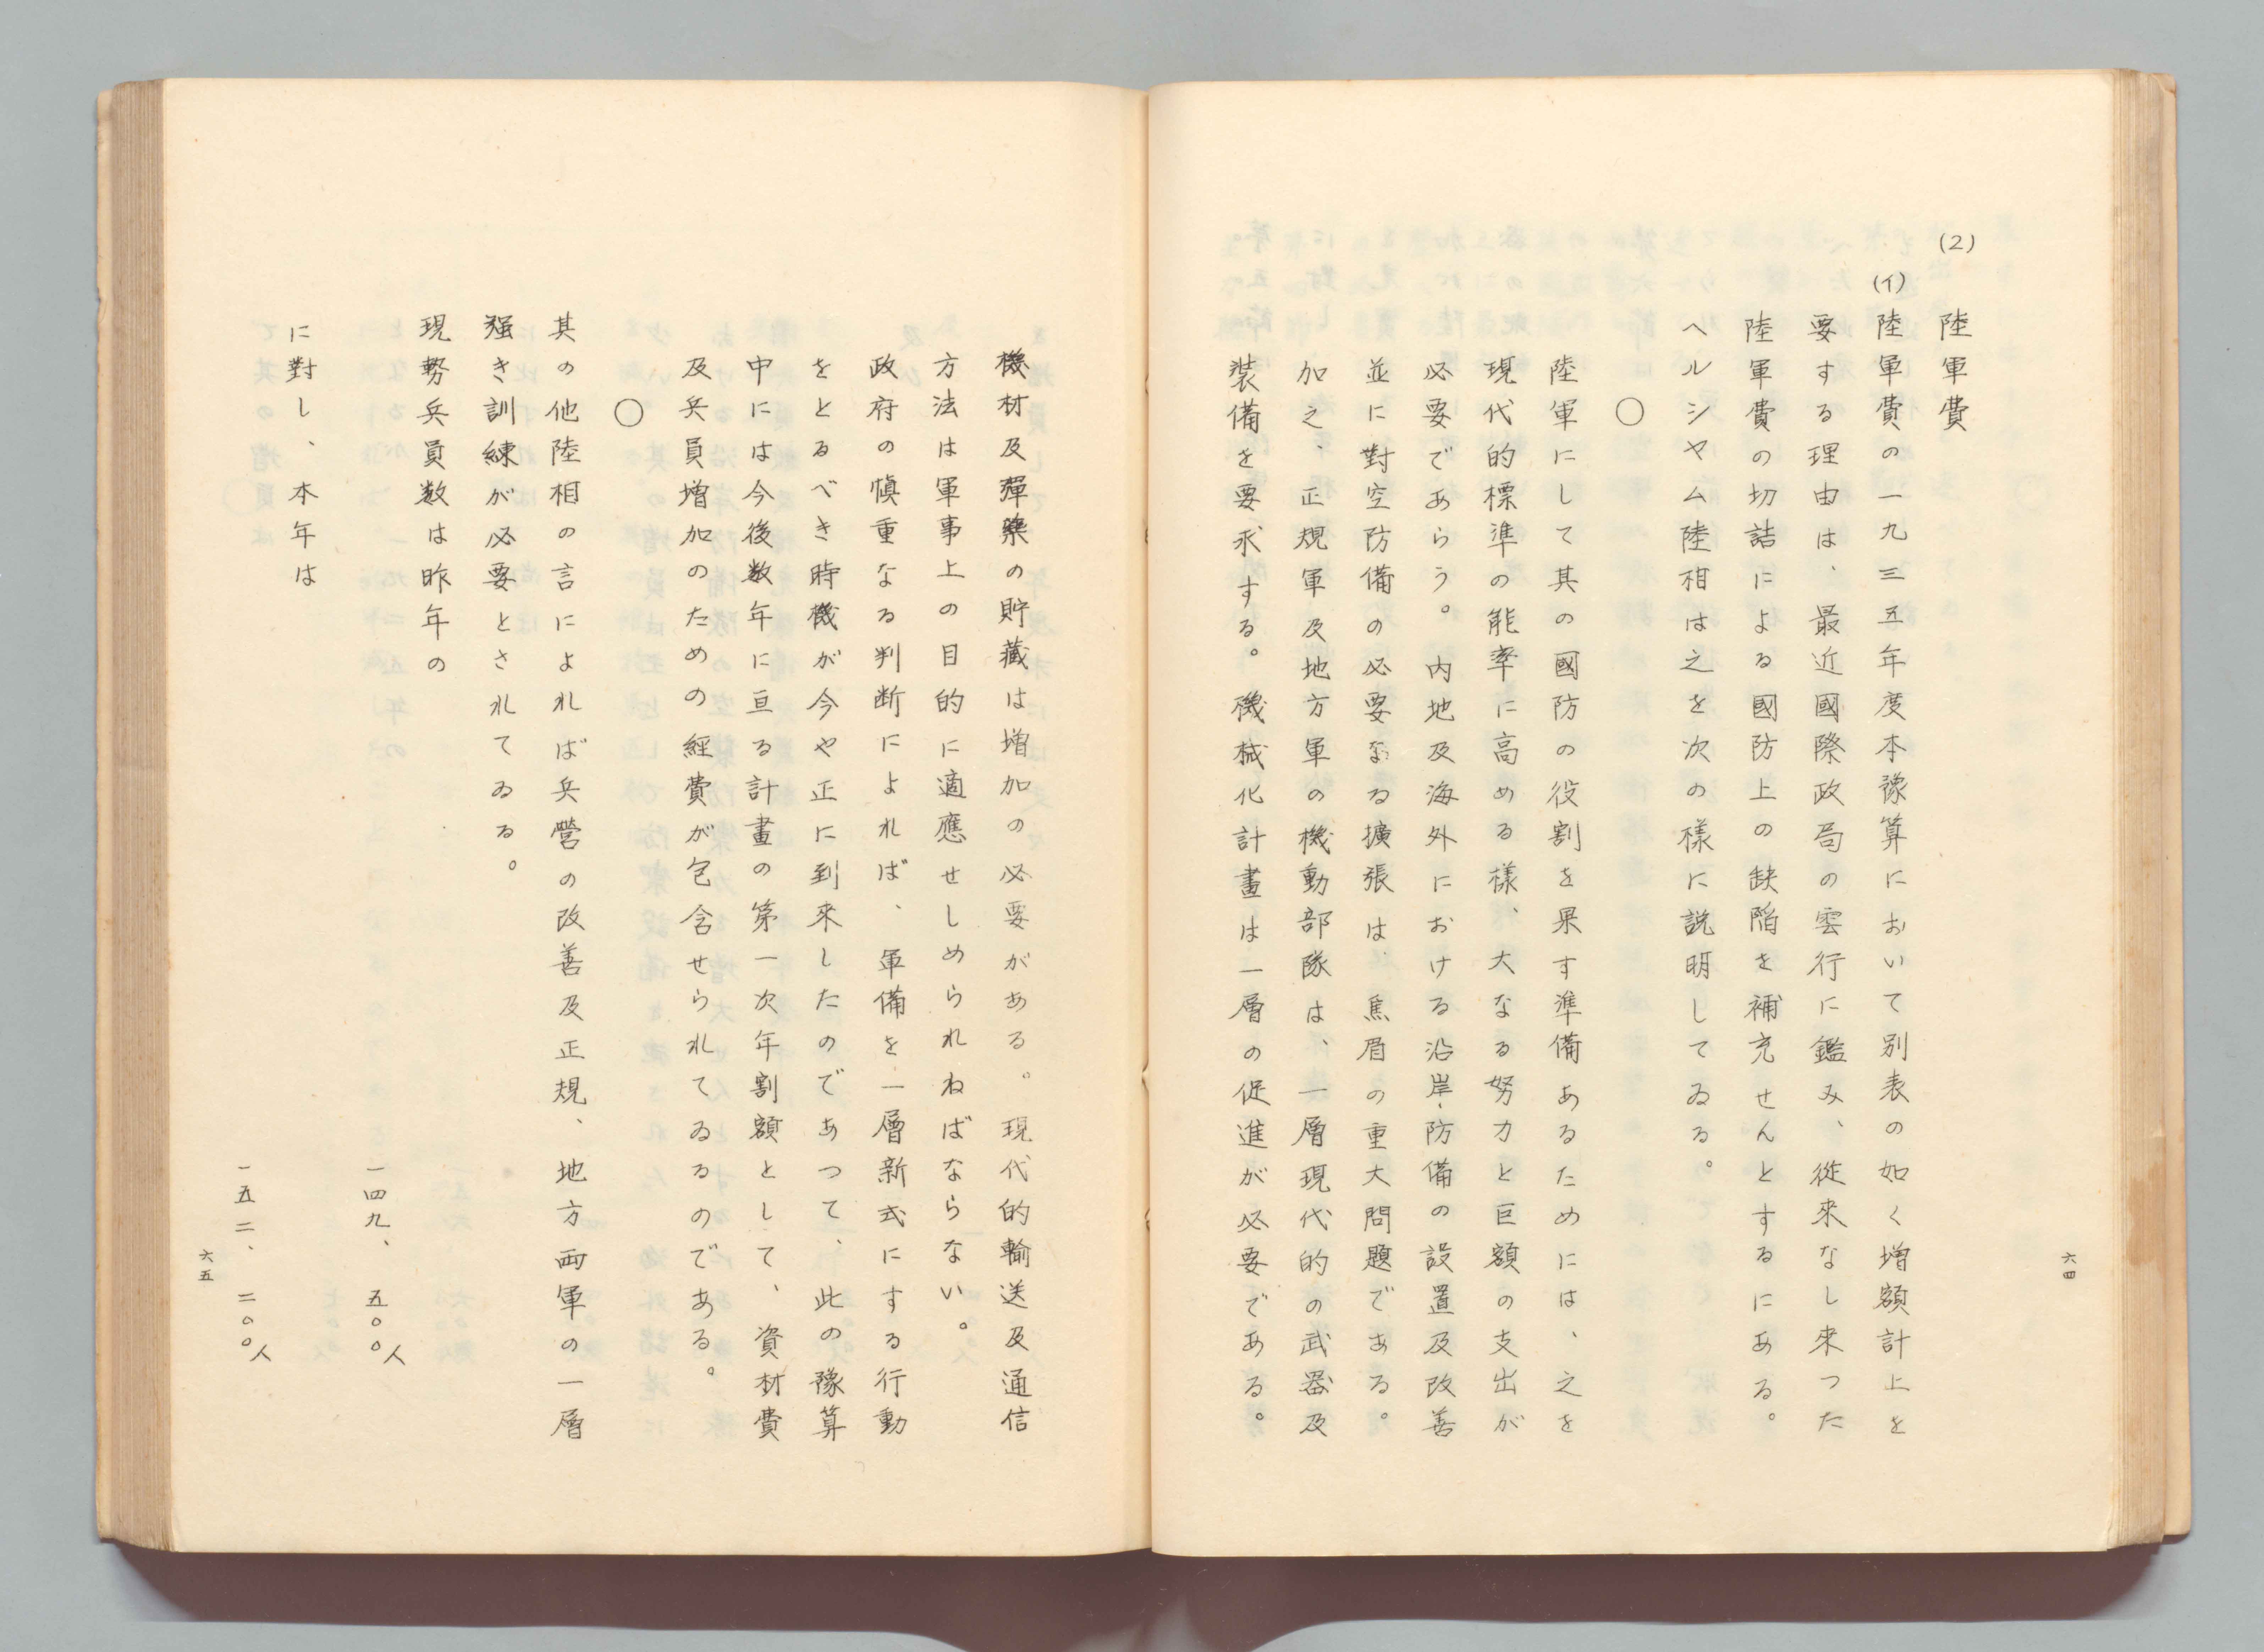 六四
(2) 陸軍費
(イ) 陸軍費の一九三五年度本豫算において別表の如く増額計上を
要する理由は、最近國際政局の雲行に鑑み、從來なし來つた
陸軍費の切詰による國防上の缺陥を補充せんとするにある。
ヘルシヤム陸相は之を次の様に説明してゐる。
○
陸軍にして其の國防の役割を果す準備あるためには、之を
現代的標準の能率に高める様、大なる努力と巨額の支出が
必要であらう。内地及海外における沿岸防備の設置及改善
並に對空防備の必要なる擴張は、焦眉の重大問題である。
加之、正規軍及地方軍の機動部隊は、一層現代的の武器及
装備を要求する。機械化計畫は一層の促進が必要である。
機材及彈藥の貯藏は増加の必要がある。現代的輸送及通信
方法は軍事上の目的に適應せしめられねばならない。
政府の愼重なる判断によれば、軍備を一層新式にする行動
をとるべき時機が今や正に到來したのであつて、此の豫算
中には今後数年に亘る計畫の第一次年割額として、資材費
及兵員増加のための經費が包含せられてゐるのである。
○
其の他陸相の言によれば兵營の改善及正規、地方両軍の一層
强き訓練が必要とされてゐる。
現勢兵員数は昨年の
一四九、五〇〇人
に對し、本年は
一五二、二〇〇人
六五